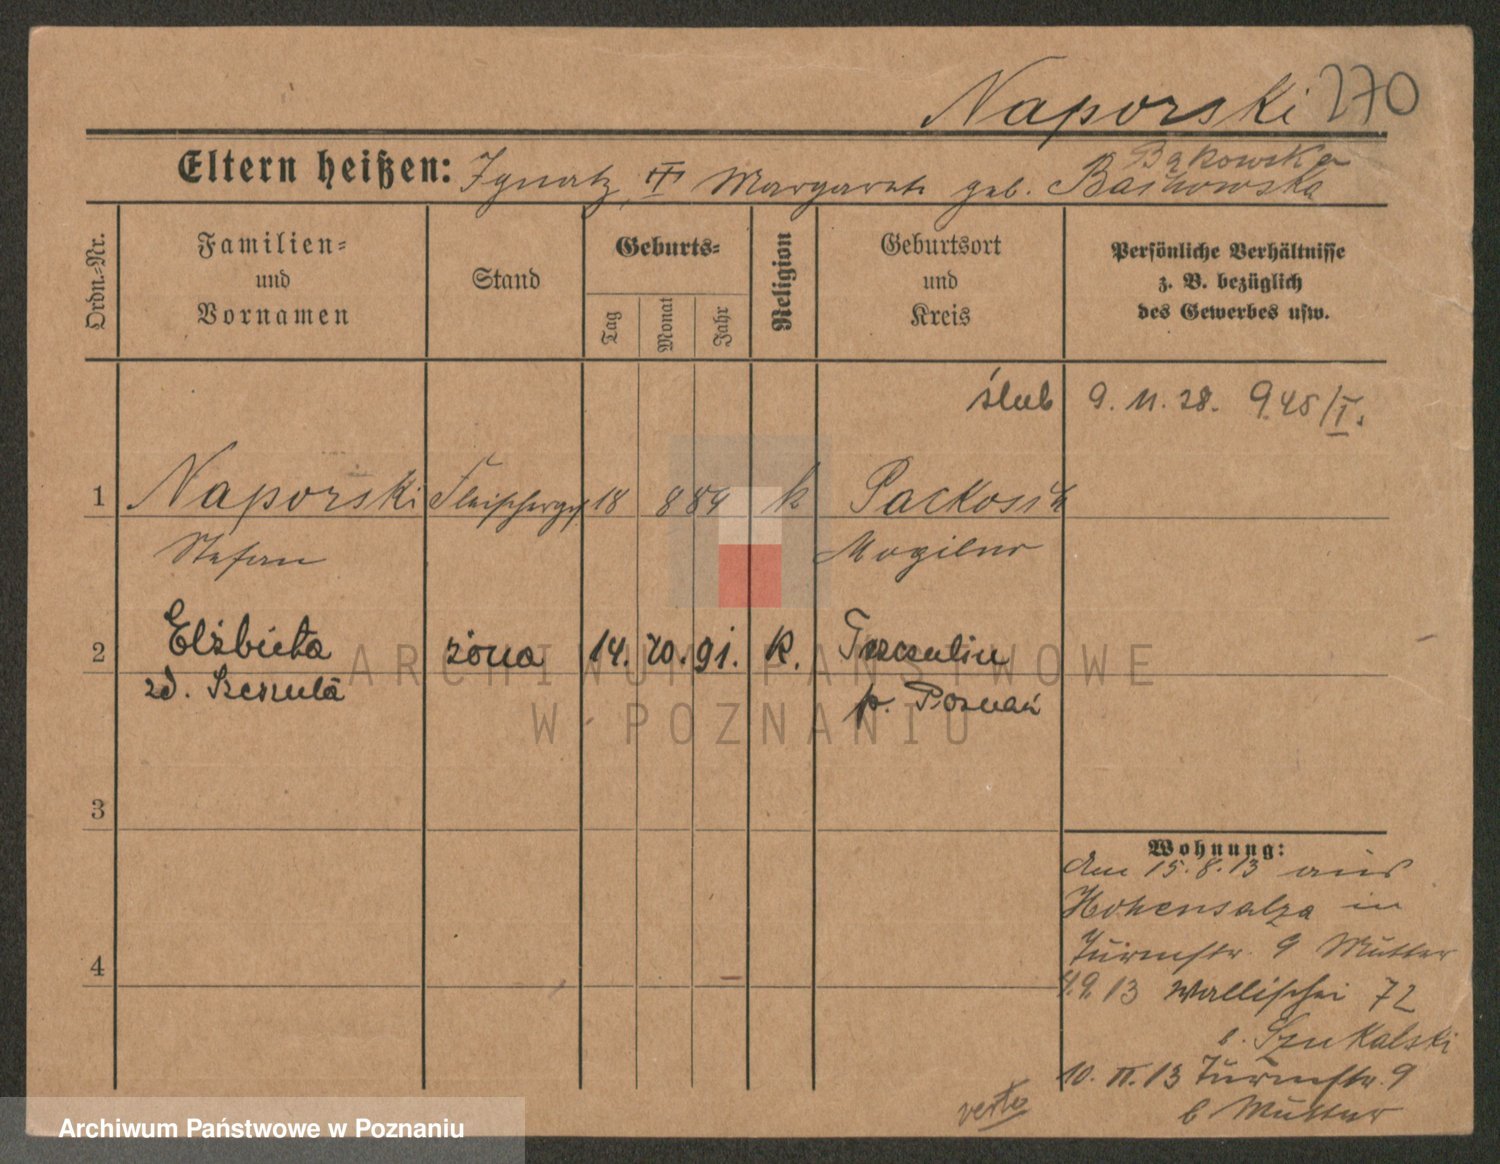 Naporski 270
Bąkowska
Eltern heißen: Ignatz, Margarete geb. Bąkowska
Ordn.-Nr.
Familien-
und
Vornamen
Stand
Geburts-
Tag
Monat
Jahr
Religion
Geburtsort
und
Kreis
Persönliche Verhältnisse
z. B. bezüglich
des Gewerbes usw.
ślub 9. 11. 28. 948/I.
1 Naporski Fleischerges 18 8 89 k Packosch
Stefan Mogilno
2 Elżbieta żona 14. 10. 91. k.
zd. Szeszuła p. Poznań
3
4
Wohnung:
Am 15.8.13 aus
Hohensalza in
Turmstr. 9 Mutter
4.9.13 Wallischei 72
b. Szukalski
10. 13 Turmstr. 9
b Mutter
verte
ARCHIWUM PAŃSTWOWE
W POZNANIU
Archiwum Państwowe w Poznaniu